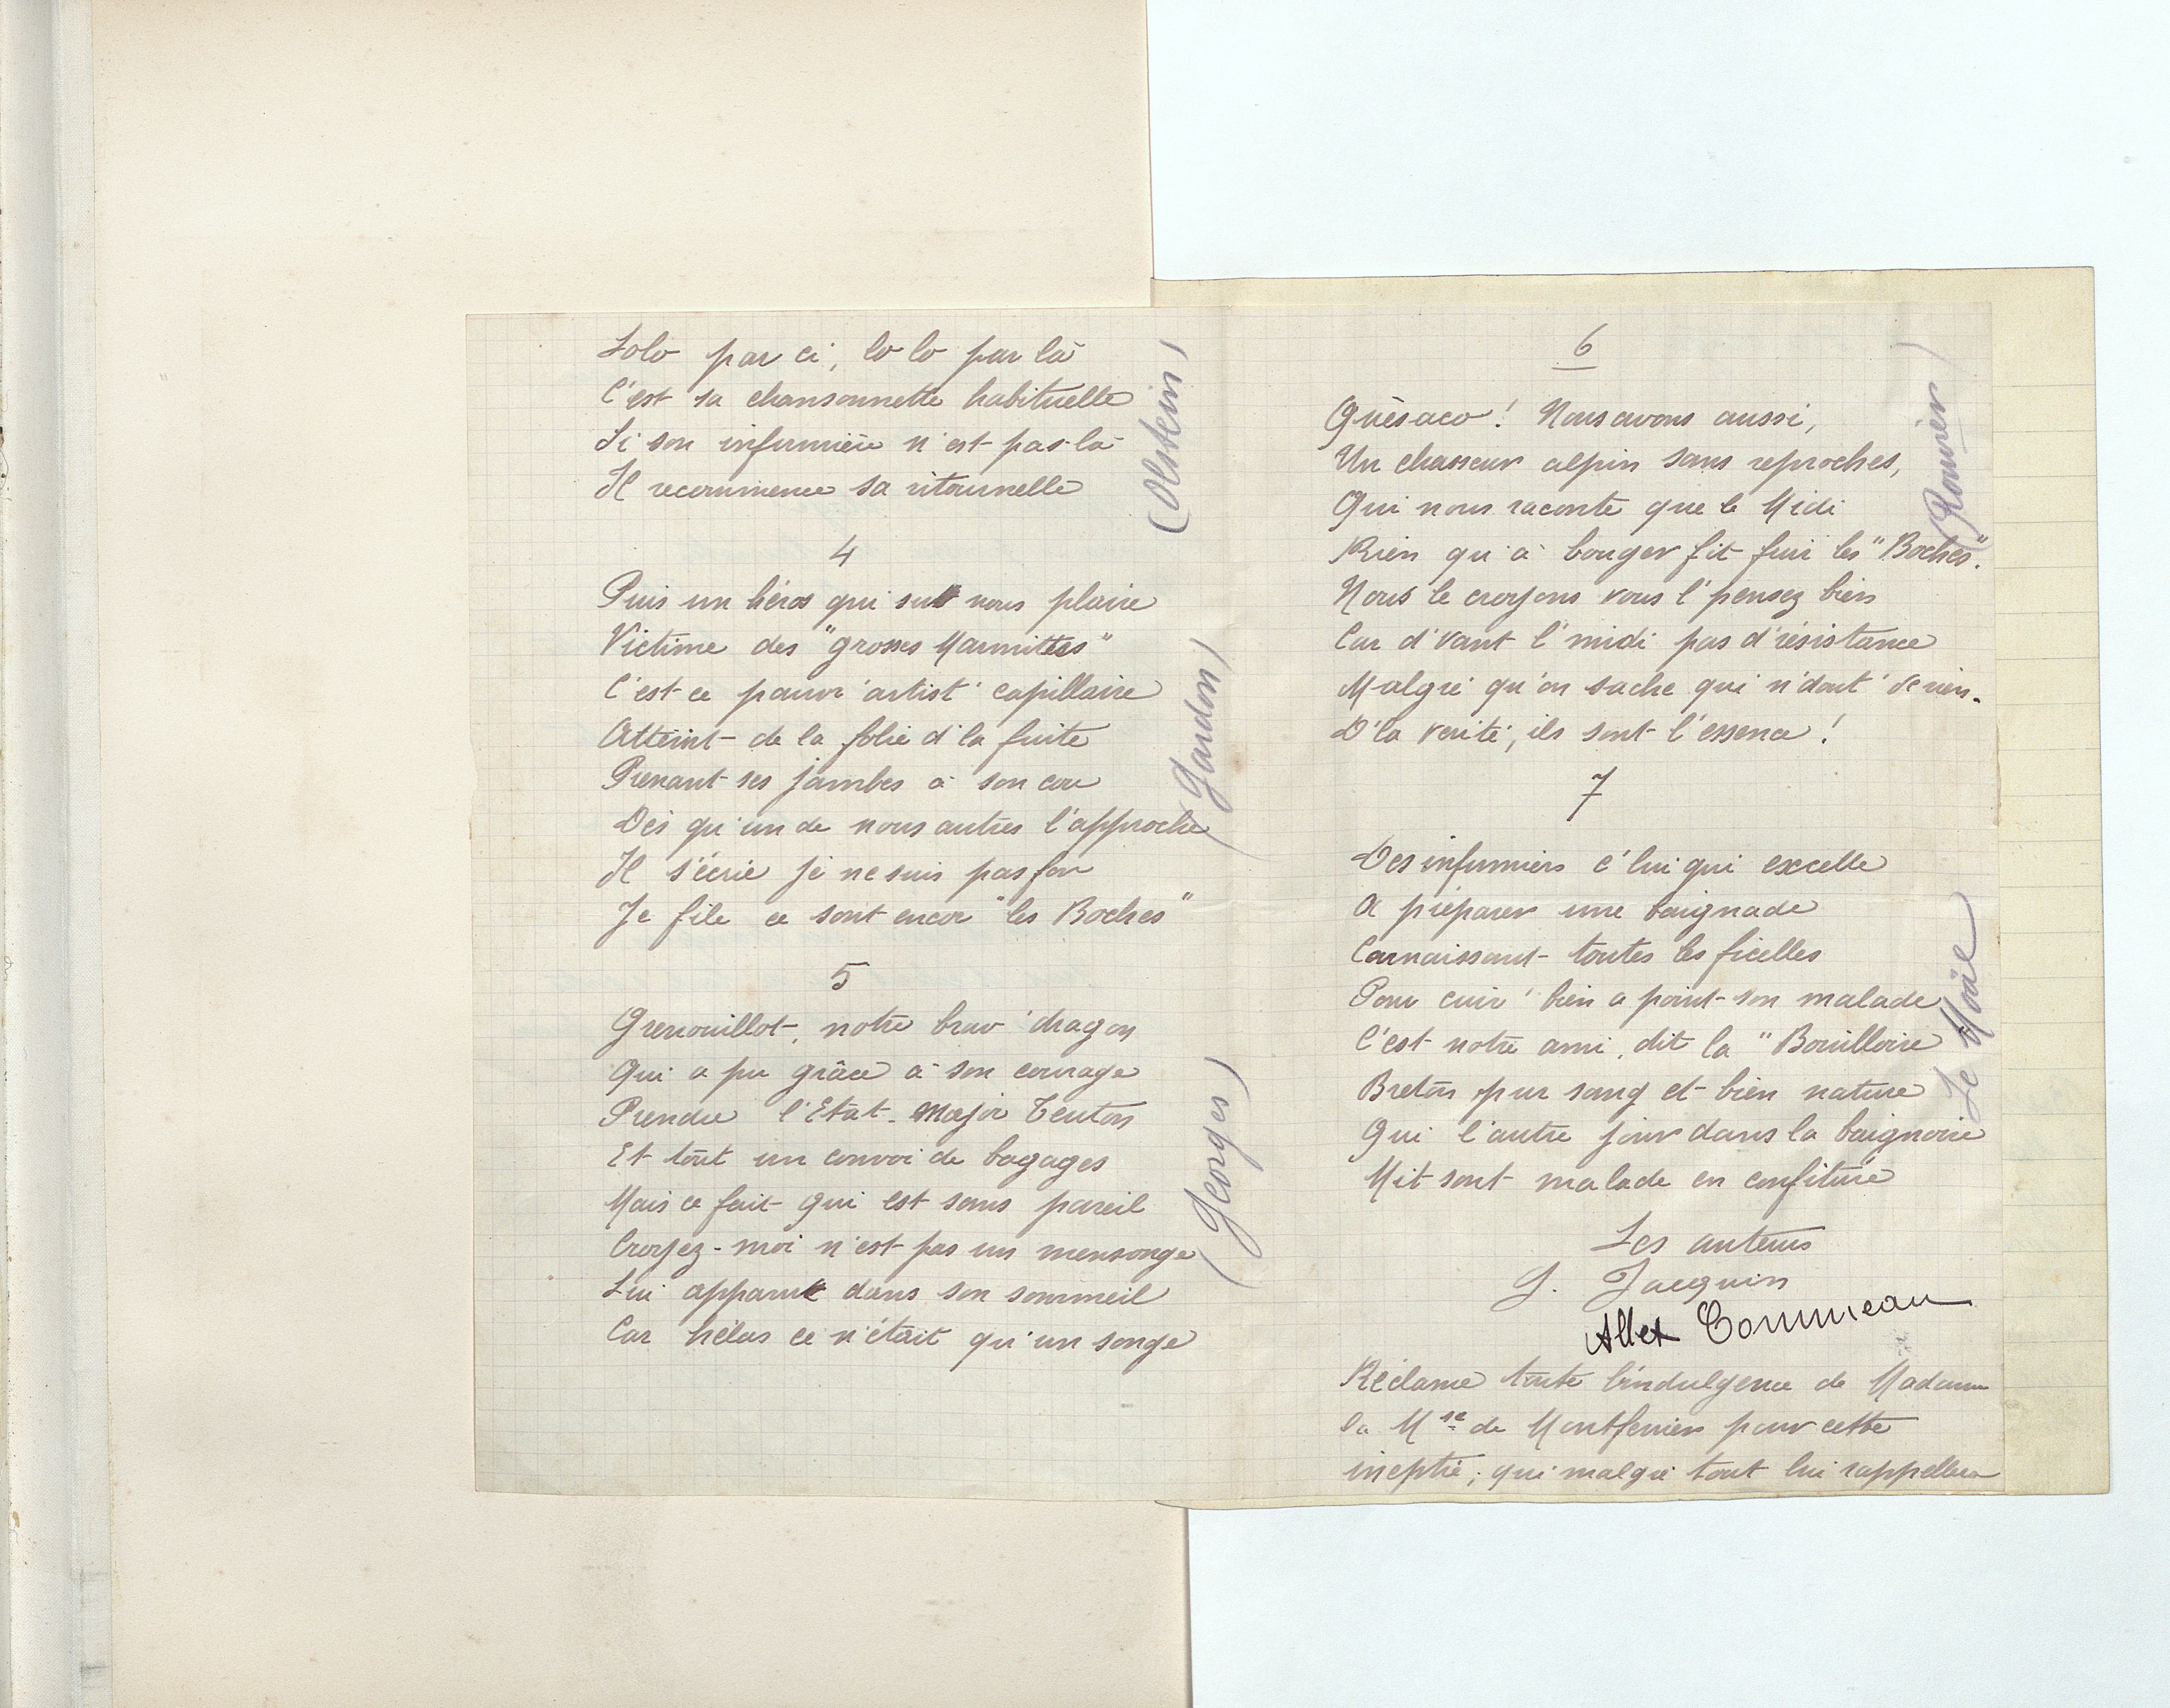 Lolo par ci, lo lo par là
C'est sa chansonnette habituelle
Si son infirmière n'est pas là
Il recommence sa ritournelle
(Olstein)
4
Puis un héros qui sut nous plaire
Victime des "grosses Marmites"
C'est ce pauvr' artist' capillaire
Atteint de la folie d'la fuite
Prenant ses jambes à son cou
Dès qu'un de nous autres l'approche
Il s'écrie je ne suis pas fou
Je file ce sont encor "les Boches"
(Gardon)
5
Grenouillot, notre brav' dragon
Qui a pu grâce à son courage
Prendre l'Etat-Major Teuton
Et tout un convoi de bagages
Mais ce fait qui est sans pareil
Croyez-moi n'est pas un mensonge
Lui apparut dans son sommeil
Car hélas ce n'était qu'un songe
(Georges)
6
Quèsaco! Nous avons aussi,
Un chasseur alpin sans reproches,
Qui nous raconte que le Midi
Rien qu'à bouger fit fuir les "Boches".
Nous le croyons vous l'pensez bien
Car d'vant l'midi pas d'résistance
Malgré qu'on sache qui n'dout' de rien.
D'la vérité, ils sont l'essence!
(Rouvier)
7
Des infirmiers c'lui qui excelle
A préparer une baignade
Connaissant toutes les ficelles
Pour cuir' bien a point son malade
C'est notre ami, dit la "Bouilloire
Breton pur sang et bien nature
Qui l'autre jour dans la baignoire
Mit sont malade en confiture
Le Moäl
Les auteurs
J. Jacquin
Albert Commeau
Réclame toute l'indulgence de Madame
la Mise de Montferrier pour cette
ineptie; qui malgré tout lui rappellera